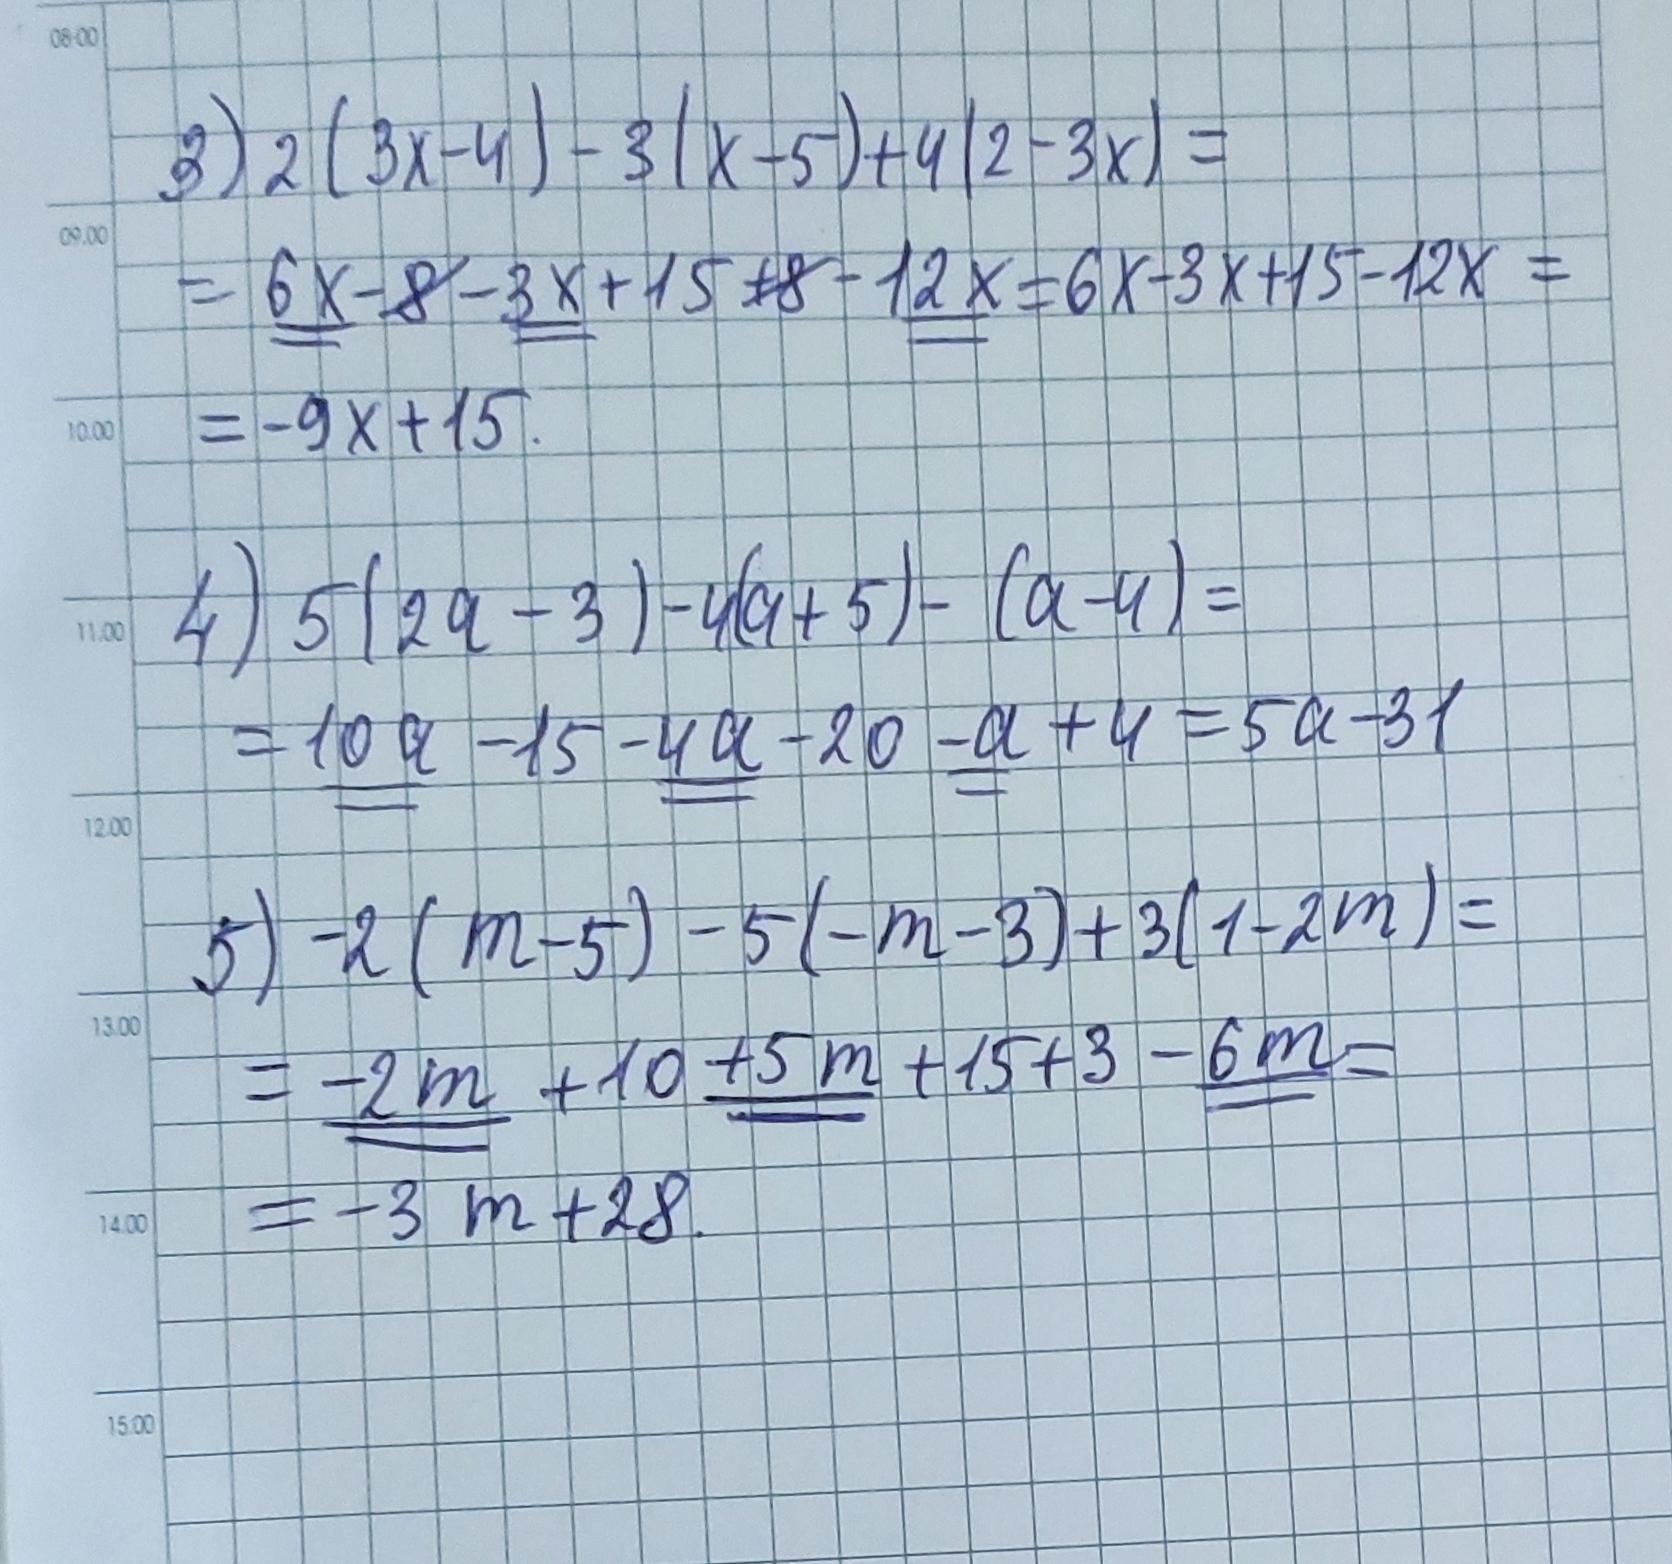 08:00
3) 2(3x-4)-3(x-5)+4(2-3x)=
09.00
= 6x-8-3x+15+8-12x=6x-3x+15-12x=
10.00
=-9x+15.
4) 5(2a-3)-4(a+5)-(a-4)=
11.00
=10a-15-4a-20-a+4=5a-31
12.00
5) -2(m-5)-5(-m-3)+3(1-2m)=
13.00
=-2m+10+5m+15+3-6m=
14.00
=-3m+28.
15:00